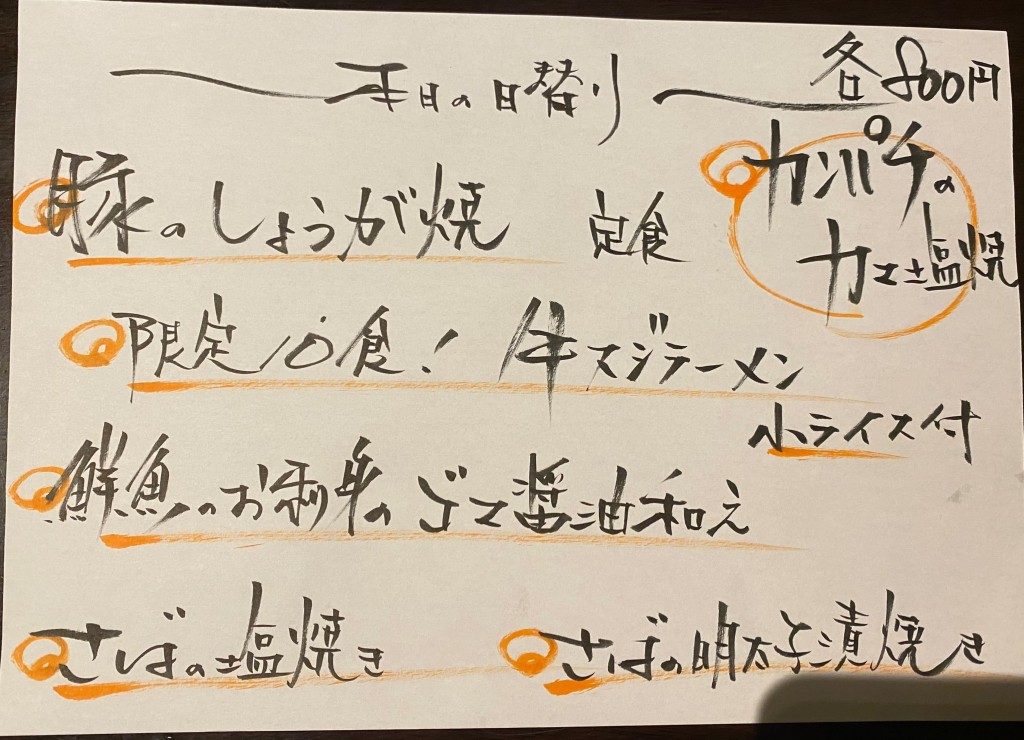 本日の日替り 各800円
豚のしょうが焼 定食
カンパチの
カマ塩焼
限定10食! 牛スジラーメン
小ライス付
鮮魚のお刺身のゴマ醤油和え
さばの塩焼き
さばの明太子漬焼き